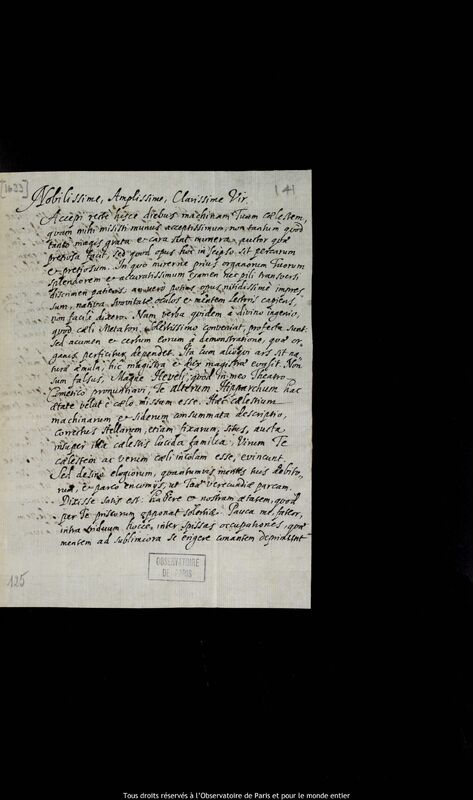 [1633]
141
Nobilissime, Amplissime, Clarissime Vir.
Accepi recte hisce diebus machinam Tuam cælestem,
quam mihi misisti munus acceptissimum, non tantum quod
tanto magis grata et cara sint munera, auctor quæ
pretiosa facit, sed quod opus hoc in seipso sit percarum
et pretiosum. In quo mirerne prius organorum Tuorum
splendorem et accuratissimum examen nec pili transversi
discrimen patiens, an vero potius opus nitidissime impres
sum, nativa suavitate oculos et mentem lectoris capiens,
non facile dixero. Nam verba quidem a divino ingenio,
quod cæli Metatori solertissimo conveniat, profecta sunt:
sed acumen et certum eorum a demonstratione, quæ or
ganis perficitur, dependet. Ita cum alioqui ars sit na
turæ æmula; hic magistra et dux magistræ evasit. Non
sum falsus, Magne Heveli, quod in meo Theatro
Cometico pronuntiavi, Te alterum Hipparchum hac
ætate velut e cælo missum esse. Hæc cælestium
machinarum et siderum consummata descriptio,
correctus stellarum, etiam fixarum, situs, aucta
insuper illa cælestis lucida familia, Virum Te
cælestem ac verum cæli incolam esse, evincunt.
Sed desino elogiorum, quantumvis mentes tuos debito,
rum, et parco encomijs, ut Tuæ verecundiæ parcam.
Dixisse satis est: habere et nostram ætatem, quod
per Te priscorum opponat solertiæ. Pauca me fateor,
intra triduum hocce, inter spissas occupationes, quæ
mentem ad sublimiora se erigere conantem deprimunt
OBSERVATOIRE
DE PARIS
125
Tous droits réservés à l'Observatoire de Paris et pour le monde entier